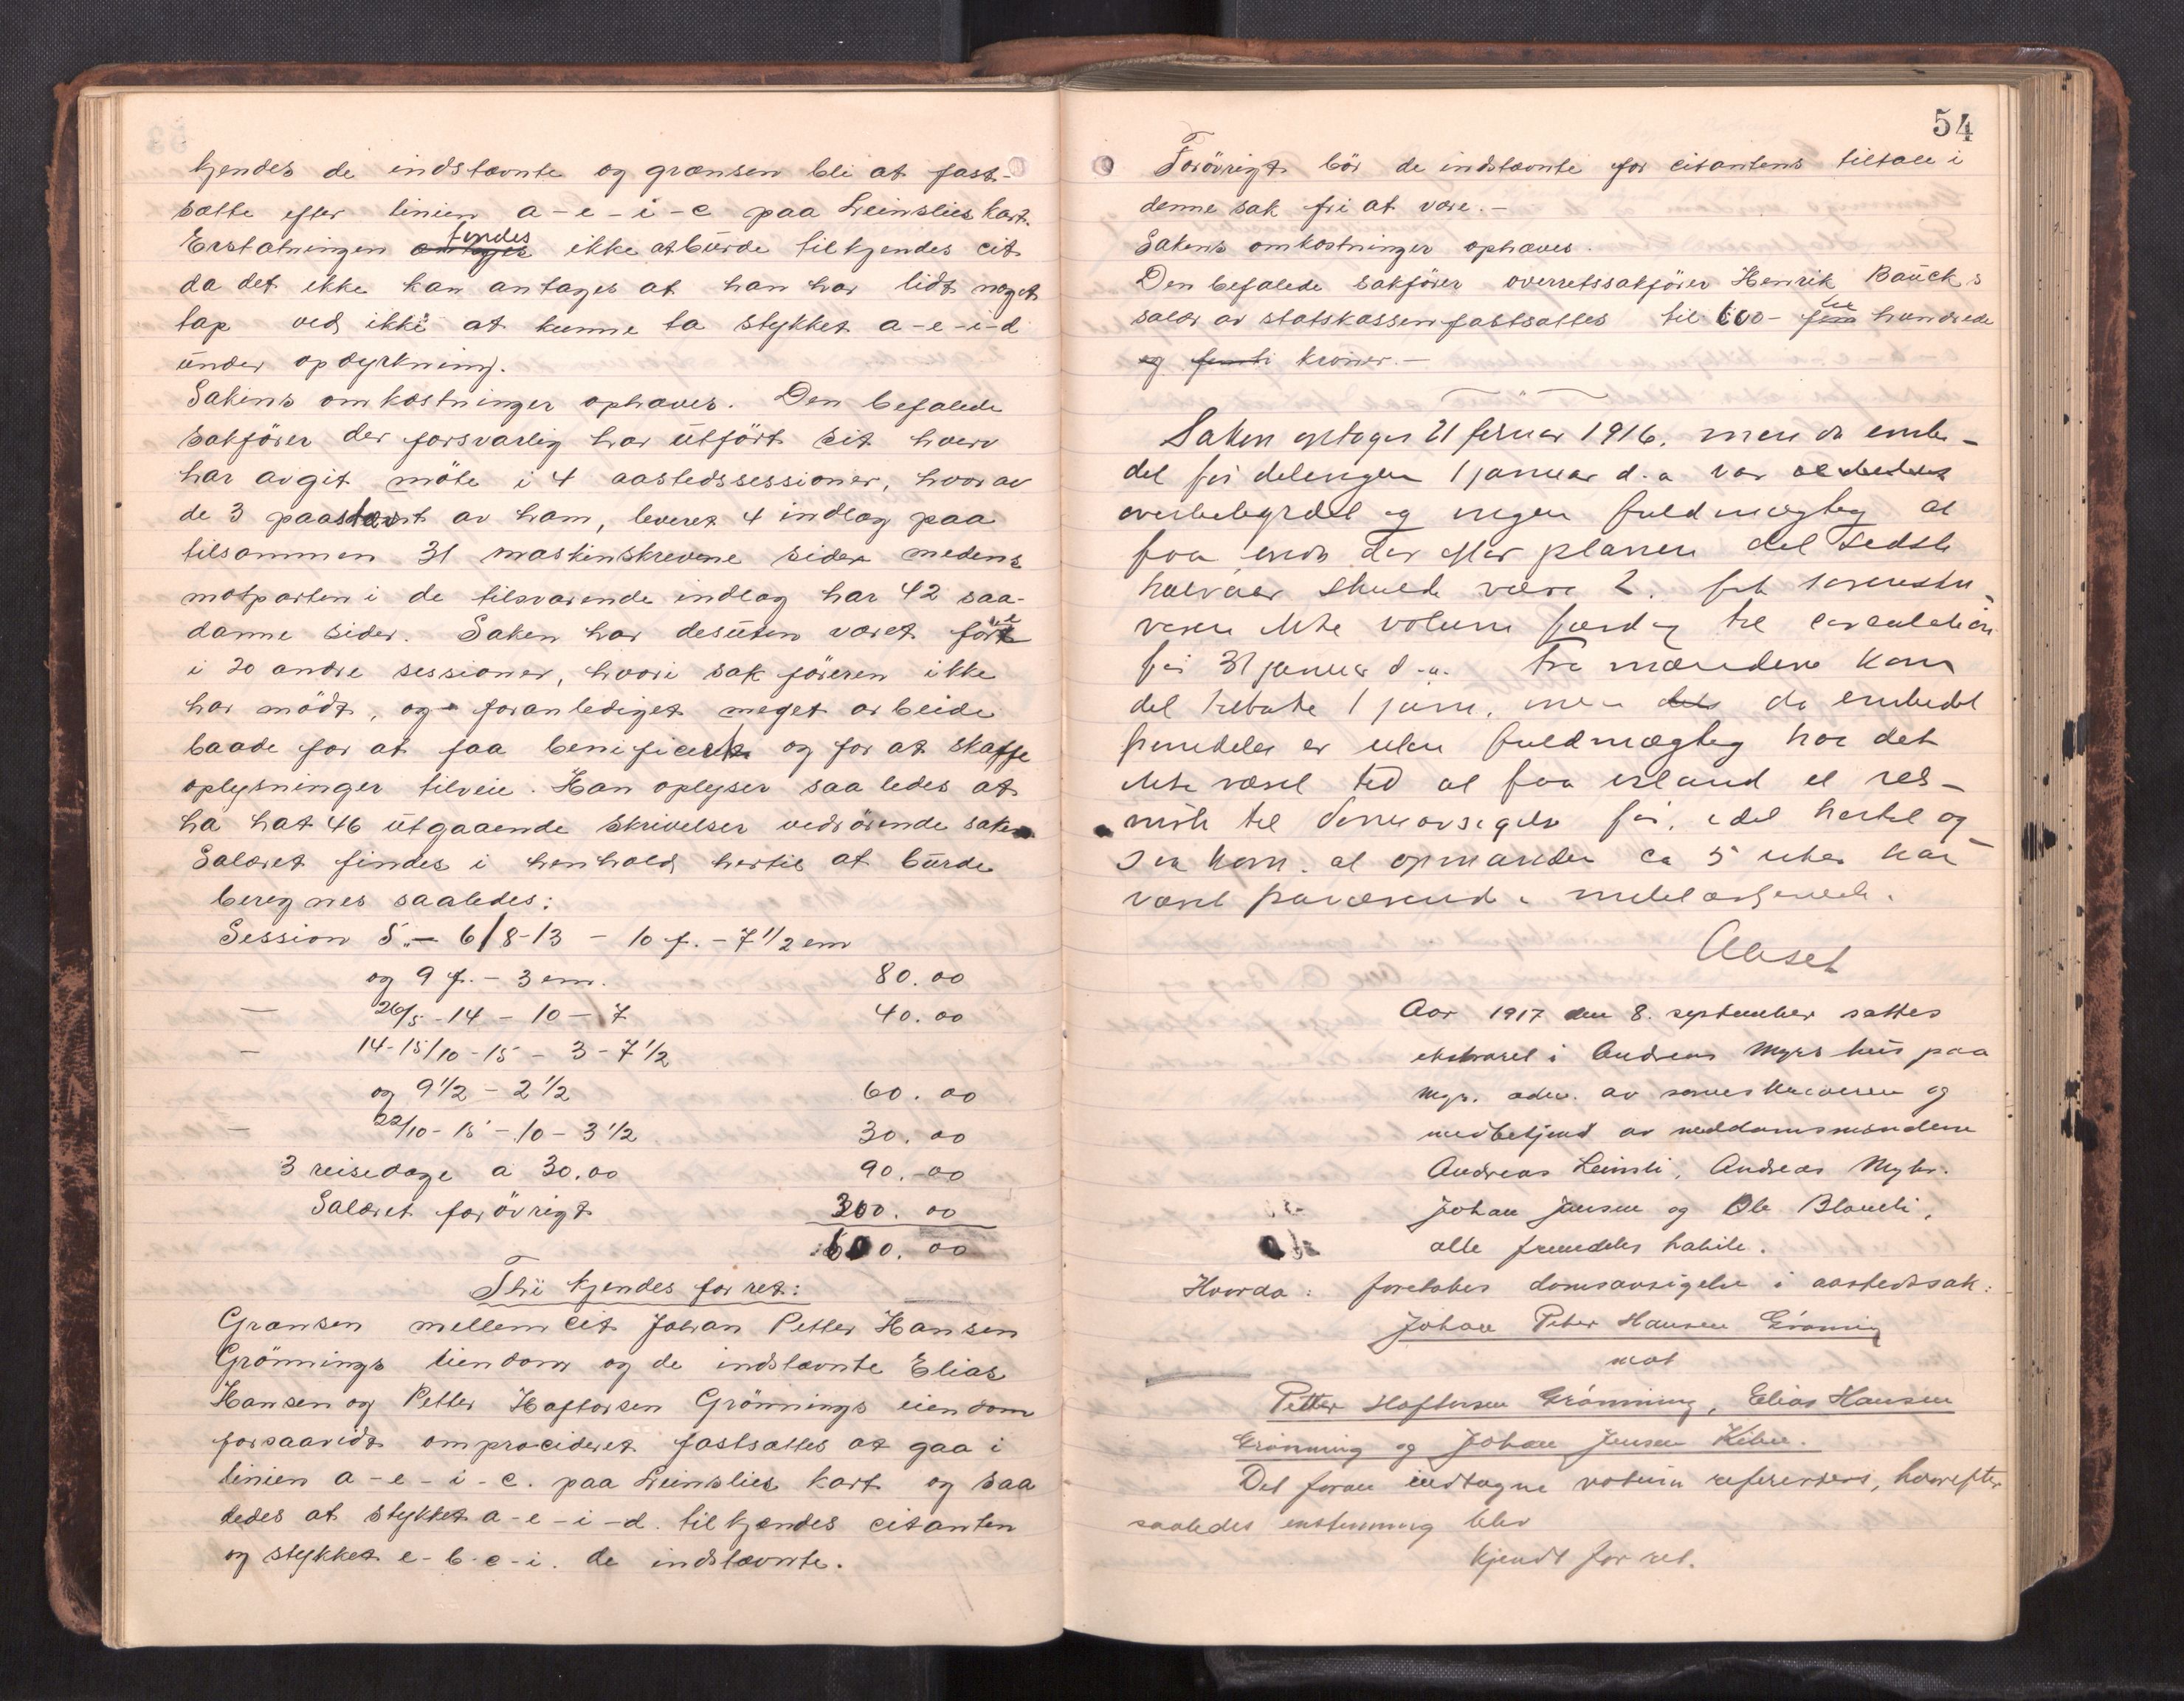 kjendes de indstævnte og grænsen bli at fast-
sætte efter linien a-e-i-c paa Leinslies kart.
Erstatningen findes ikke at burde tilkjendes cit
da det ikke kan antages at han har lidt noget
tap ved ikke at kunne ta stykket a-e-i-d
under opdyrkning.
Sakens omkostninger ophæves. Den befalede
sakförer der forsvarlig har utfört sit hverv
har avgit möte i 4 aastedssessioner, hvorav
de 3 paastævnt av ham, leveret 4 indlæg paa
tilsammen 31 maskinskrevne sider medens
motparten i de tilsvarende indlæg har 42 saa-
danne sider. Saken har desuten været före
i 20 andre sessioner, hvori sakföreren ikke
har mödt, og foranlediget meget arbeide
baade for at faa benificert og for at skaffe
oplysninger tilveie. Han oplyser saaledes at
ha hat 46 utgaaende skrivelser vedrörende saken
Salæret findes i henhold hertil at burde
beregnes saaledes:
Session 5.- 6/8-13 - 10 f. - 7 1/2 em
og 9 f. - 3 em. 80.00
— 26/5-14 - 10 - 7 40.00
— 14-15/10-15 - 3 - 7 1/2
og 9 1/2 - 2 1/2 60.00
— 22/10-15 - 10 - 3 1/2 30.00
3 reisedage a 30.00 90.-00
Salæret forövrigt 300.00
600.00
Thi kjendes for ret:
Grænsen mellem cit Johan Petter Hansen
Grönnings eiendom og de indstævnte Elias
Hansen og Petter Haftorsen Grönnings eiendom
forsaavidt omprocideret fastsættes at gaa i
linien a-e-i-c. paa Leinslies kart og saa
ledes at stykket a-e-i-d. tilkjendes citanten
og stykket e-b-c-i. de indstævnte.
54
Forövrigt bör de indstævnte for citantens tiltale i
denne sak fri at være.-
Sakens omkostninger ophæves.
Den befalede sakförer overretssakförer Henrik Baucks
salær av statskassen fastsættes til 600- hundrede
og femti kroner.-
Saken optages 21 februar 1916, men da embe-
det för delingen 1 januar d.a. var
overbebyrdet og ingen fuldmægtig at
faa enda der efter planen det sidste
halvaar skulde være 2. fik sorenskri-
veren ikke votum færdig til cirkulation
för 31 januar d.a. Fra mændene kom
det tilbake 1 juni, men da embedet
fremdeles er uten fuldmægtig har det
ikke været tid at faa istand et ret-
möte til domsavsigelse för, idet hertil og-
saa kom at opmanden ca 5 uker har
været fraværende i
Abset
Aar 1917 den 8. september sattes
ekstraret i Andreas Myrs hus paa
Myr. adm. av sorenskriveren og
medbetjent av meddomsmændene
Andreas Leinsli, Andreas Myhr.
Johan Jensen og Ole
alle fremdeles habile.
Hvorda: foretokes domsavsigelse i aastedssak:
Johan Peter Hansen Grönning
mot
Petter Haftorsen Grönning, Elias Hansen
Grönning og Johan Jensen Kibu.
Det foran indtagne votum refereres, hvorefter
saaledes enstemmig blev
kjendt for ret.